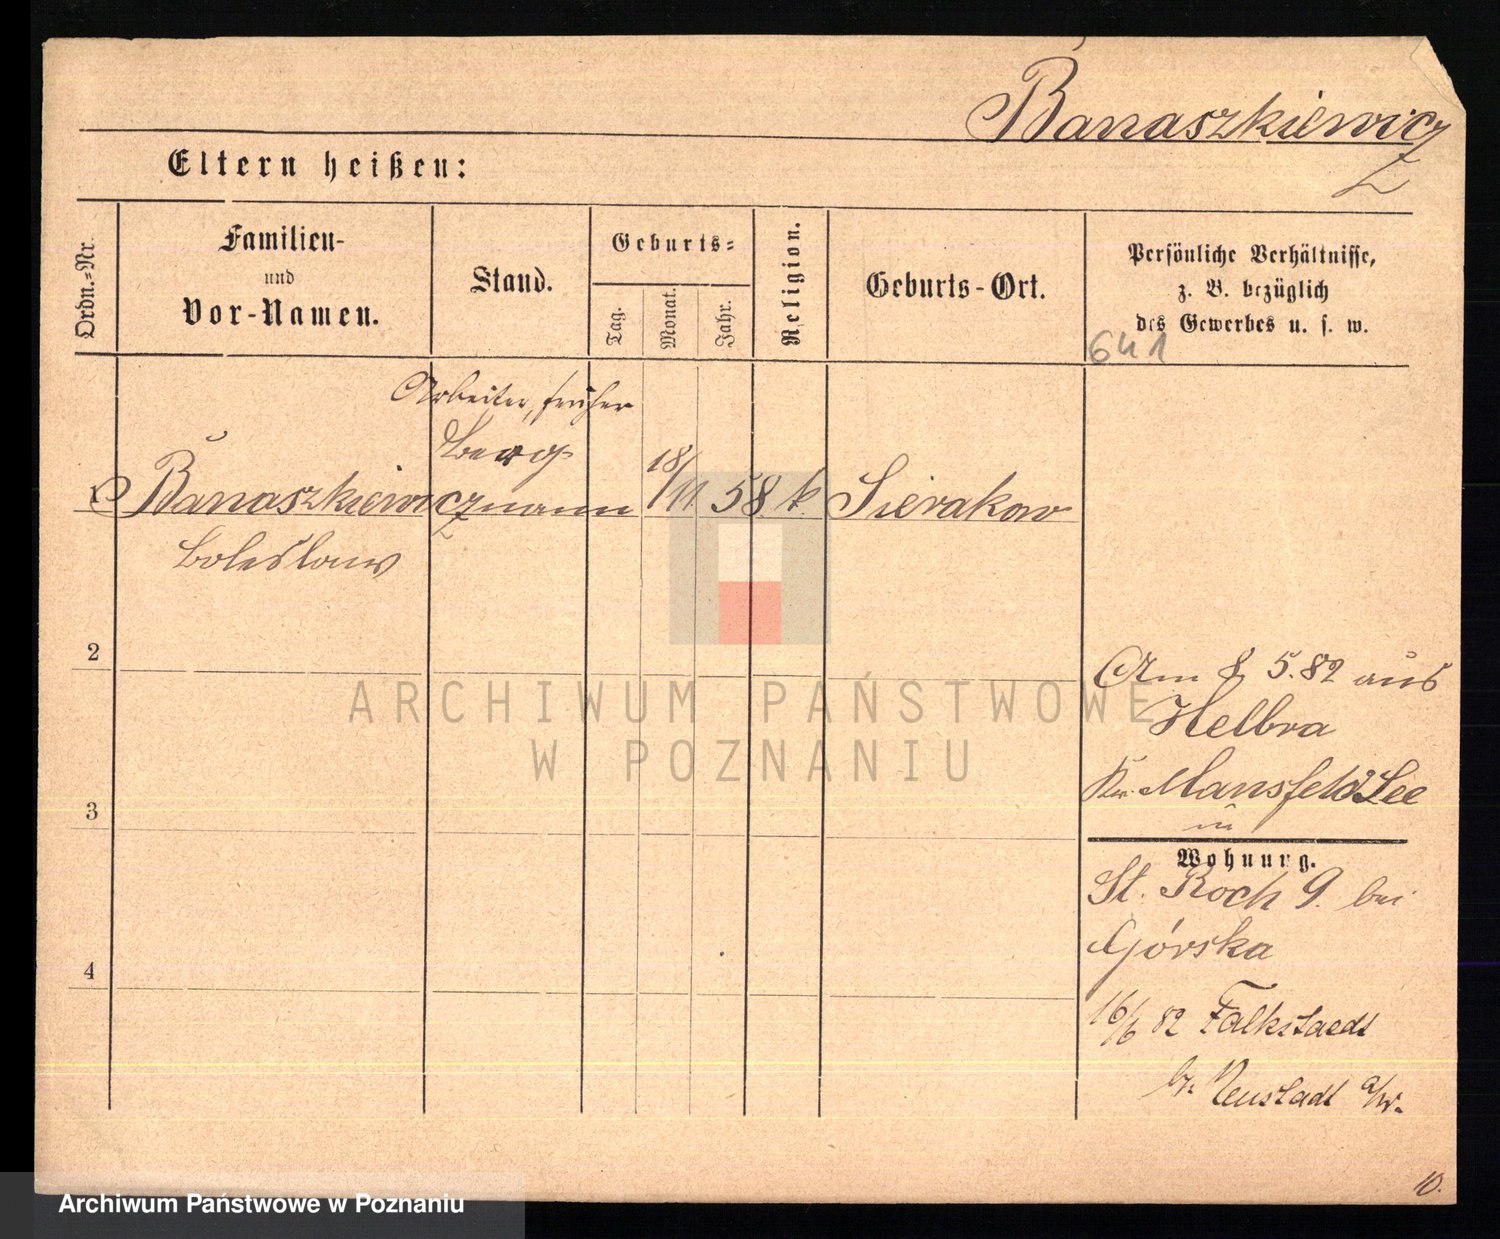 Banaszkiewicz
Eltern heißen:
Ordn.-Nr.
Familien-
und
Vor-Namen.
Stand.
Geburts-
Tag.
Monat.
Jahr.
Religion.
Geburts-Ort.
Persönliche Verhältnisse,
z. B. bezüglich
des Gewerbes u. s. w.
641
Arbeiter, früher
Berg-
1 Banaszkiewicz mann 18/11 58. k. Sierakow
Boleslaus
2
Am 8. 5. 82 aus
Helbra
Kr. Mansfeld See
in
3
Wohnung.
St. Roch 9. bei
Górska
4
16/6 82 Falkstaedt
b. Neustadt a/W.
10.
ARCHIWUM PAŃSTWOWE
W POZNANIU
Archiwum Państwowe w Poznaniu